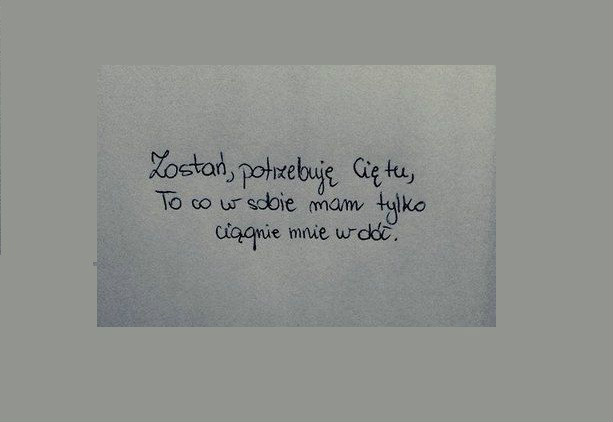 Zostań, potrzebuję Cię tu,
To co w sobie mam tylko
ciągnie mnie w dół.